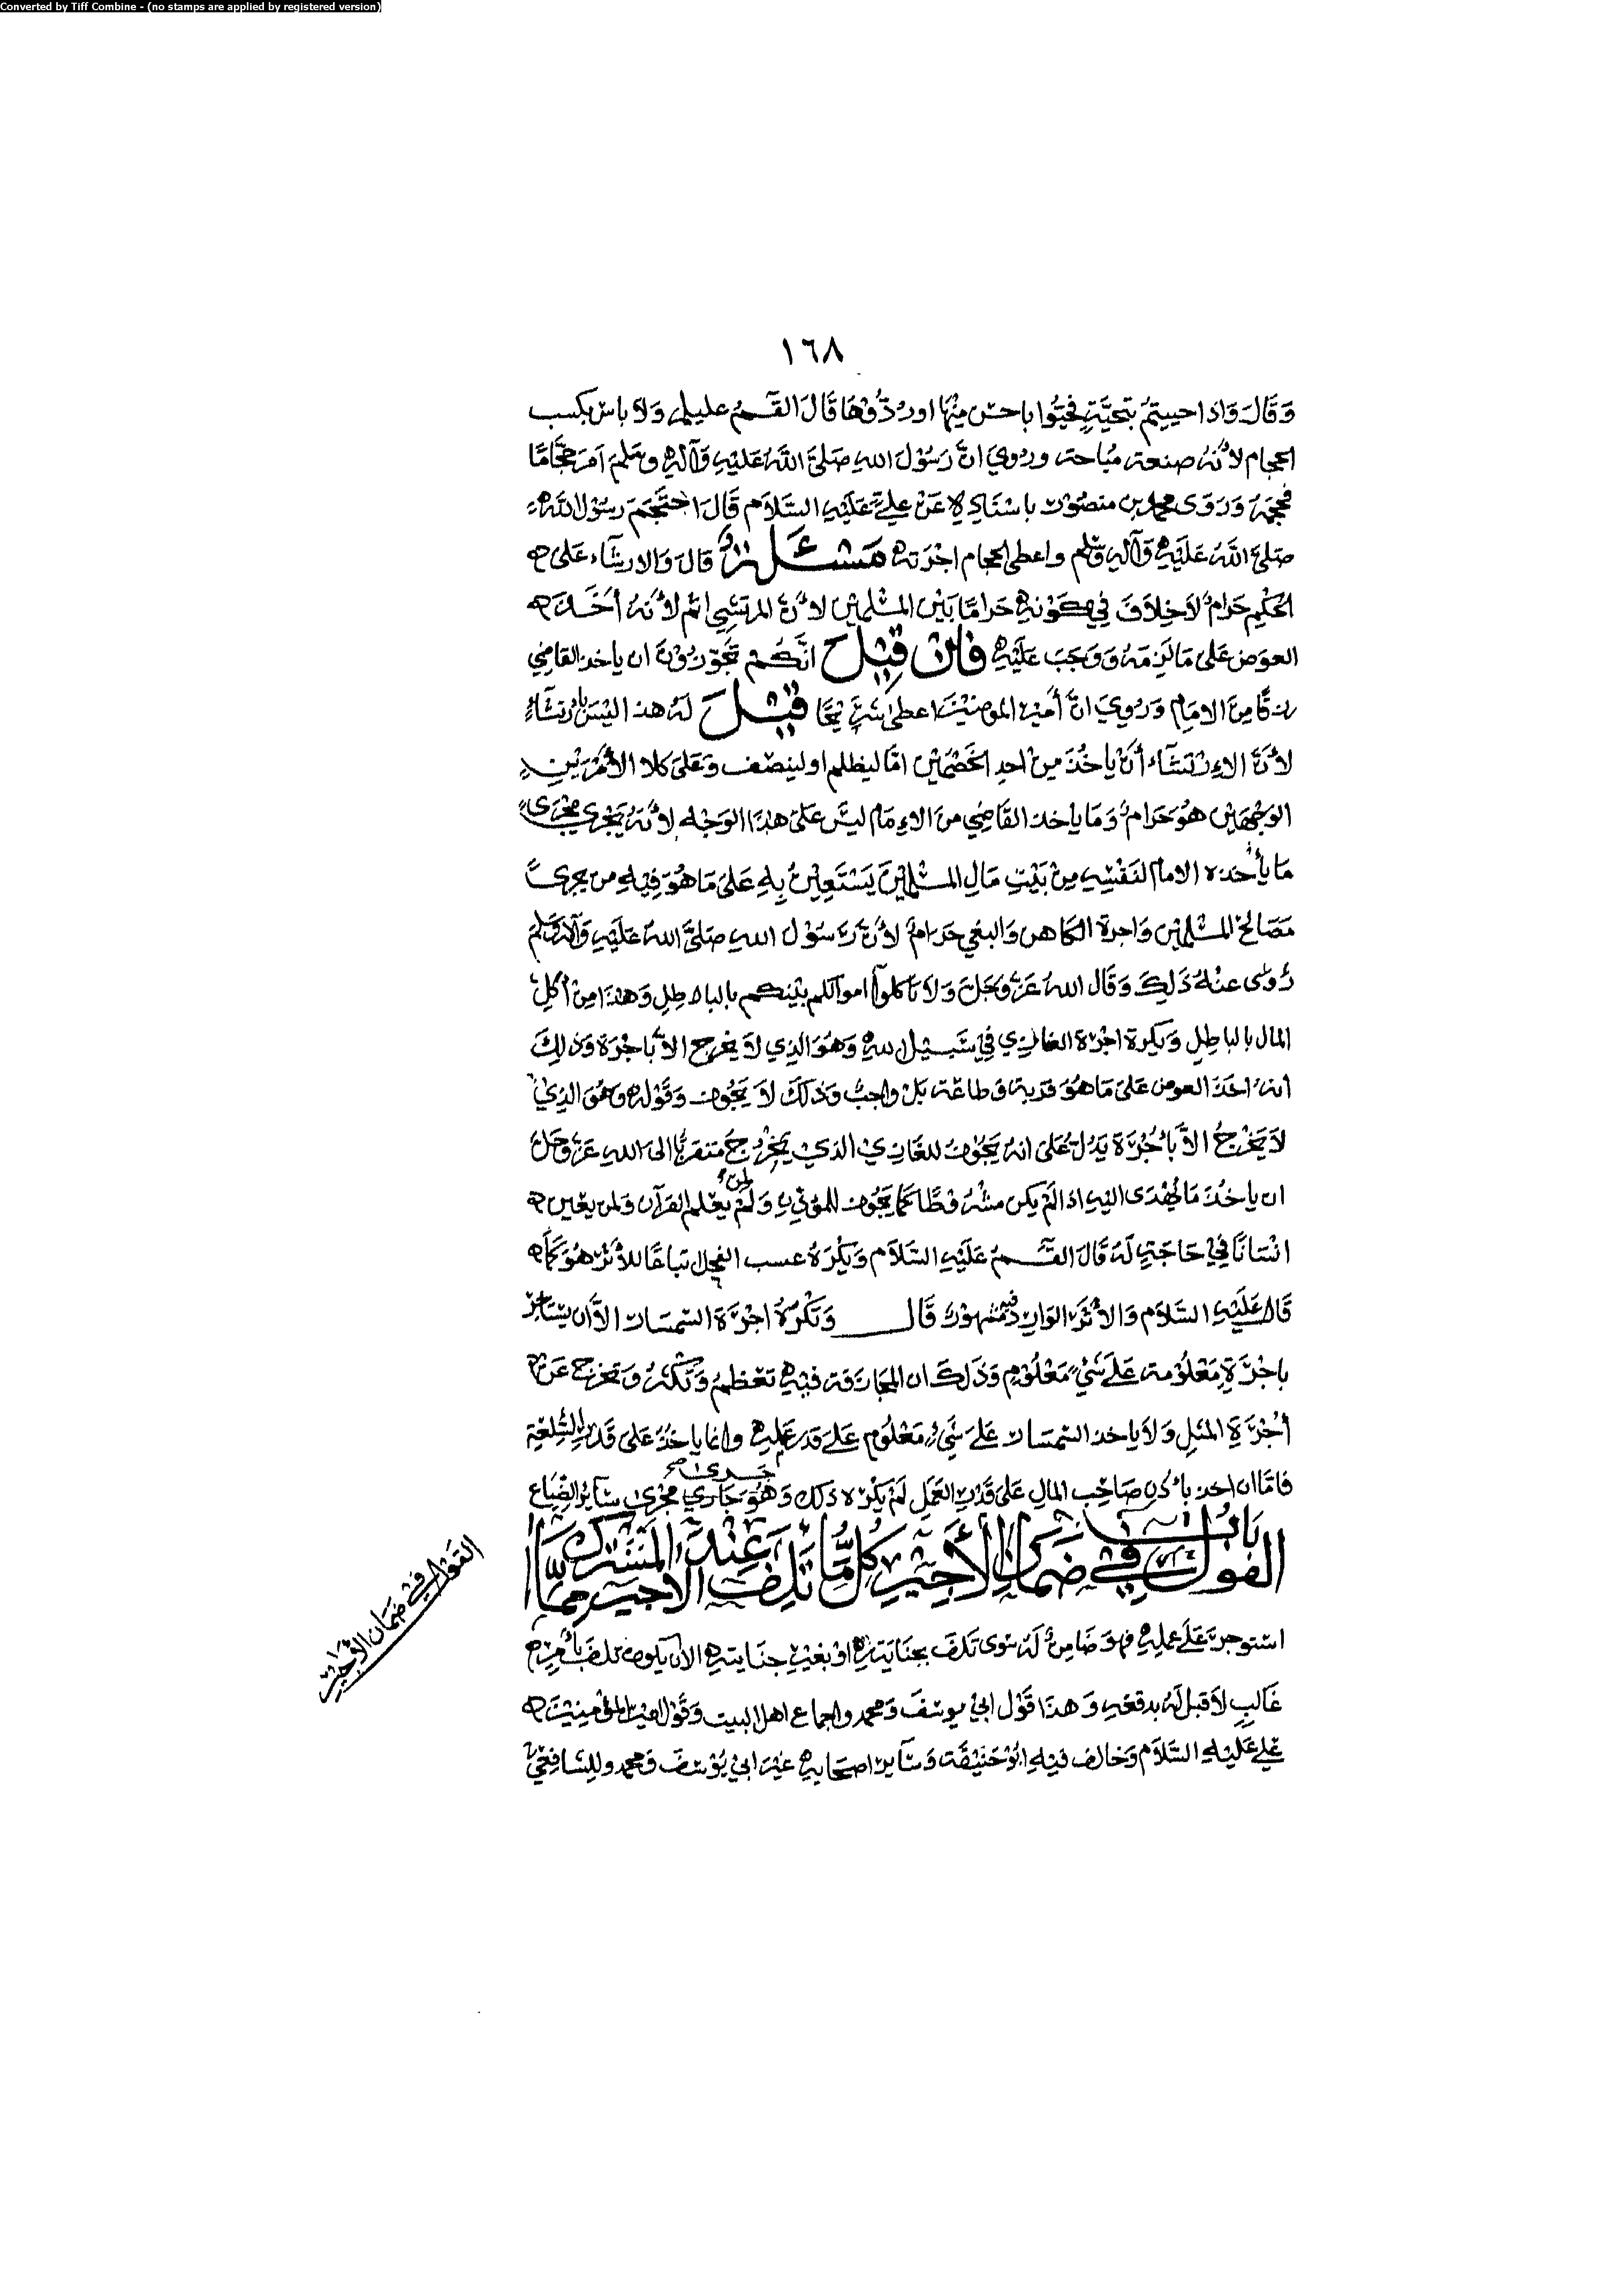 Converted by Tiff Combine - (no stamps are applied by registered version)
١٦٨
وَقَالَ وَاذا حييتم بتحيَّةٍ فحَيُّوا باحسن مِنْهَا اورُدُّوْهَا قَالَ القٰسمُ عليلم وَلا باس بكسب
الحجام لأنه صنعة مُباحة وروي انَّ رَسُوْلَ اللهِ صَلىَّ اللهُ عَليْهِ وَآلهِ وسَلم اَمَرَ حَجَّامًا
فحجمَهُ وَرَوَى محمد بن منصُور باسْنادِهِ عَنْ عليٍّ عَليْهِ السَّلاَم قَالَ احتَجَمَ رسُوْل اللهِ
صَلىَّ اللهُ عَليْهِ وَآلهِ وَسَلم واعطى الحجام اجْرَته مَسْئَلة قالَ وَالارشآء عَلى
الحُكْمِ حَرامٌ لاَخِلاَفَ فِي كَوْنهِ حَرَامًا بَيْنَ المسْلمِيْنَ لاَنَّ المرتشِي اثم لأَنهُ أخَذَ
العوَض عَلى مَا لزمَهُ وَوَجَبَ عَليْهِ فان قِيْل انَّكُمْ تجَوّزُوْنَ ان ياخذ القاضِي
رزقًا مِنَ الامَام وَرُوِيَ انَّ أمِيْرَ المومنِيْنَ اعطى شُرَيْحًا قِيْلَ لهُ هذا ليْسَ بارْتشَآءٍ
لأنَّ الاِرْتشَآءَ أنْ ياخُذَ مِنْ احدِ الخَصْمَيْن امّا ليظلم او لينصف وَعَلى كلا الأمْرَيْنِ
الوَجْهَيْن هُوَ حَرَامٌ وَمَا ياخذ القَاضِي منَ الاِمَام ليسَ عَلى هذا الوَجْه لأنهُ يَجْرِي مَجْرَى
مَا يأخُذه الامام لنفْسِهِ مِنْ بَيْتِ مَالِ المسْلِمِيْنَ يَسْتَعِيْنُ بهِ عَلى مَا هُوَ فيهِ من
مَصَالحْ المسْلمِيْن وَاجرة الكاهن وَالبغي حَرَامٌ لأنَّ رَسُوْلَ اللهِ صَلىَّ اللهُ عَليْهِ وَآلهِ وَسَلمْ
رُوَى عَنْهُ ذَلِكَ وَقَال اللهُ عَزَّ وَجَلَّ وَلا تاكلوا اموالكم بيْنكم بالباطِل وَهذا مِنْ أكلِ
المال بالباطِل وَيكرَه اجْرَة الغازي فِي سَبيْل اللهِ وَهُوَ الذِي لاَ يخرج الاّ باجْرَة وَذلِكَ
انهُ اخذ العوض عَلى مَا هُوَ قربة وَطاعَة بَلْ وَاجبٌ وَذلكَ لاَ يَجُوز وَقَوْله وَهُوَ الذِي
لاَ يَخْرجُ الاَّ باجُرَة يَدُلّ عَلى انهُ يَجُوزُ للغَازي الذي يخرجُ متقربًا الى اللهِ عَزَّ وَجَلَّ
ان ياخُذَ مَا يُهْدَى اليْهِ اذا لمْ يكن مشْرُوطًا كَمَا يَجُوز للمؤذِنِ وَلمن يعَلم القرآن وَلمن يعين
انْسَانًا فِيْ حَاجَةٍ لهُ قَالَ القٰسمُ عَليْهِ السَّلاَم وَيكْرَهُ عسب الفحل تباعًا للأثر هُوَ كمَا
قال عَليْهِ السَّلاَم وَالأثَرَ الوَارِد فيه مَشْهُور قَال وَتكْرَهُ اجْرَة السِّمْسَار الاّ ان يستاجَر
باجْرَةٍ مَعْلوْمة عَلى شَيْءٍ مَعْلوْمٍ وَذَلكَ ان المجازفة فيهِ تعْظمُ وَتكثرُ وَتخرج عَنْ
أجْرَةِ المثلِ وَلاَ ياخذ السِّمْسَار عَلىَ شَيْءٍ مَعْلوْمٍ عَلى قَدر عَمَلهِ وانما ياخُذُ عَلىَ قَدرِ السِّلْعَةِ
فامّا ان اخذ باذن صَاحِب المال عَلى قَدْرِ العَمَلِ لمْ يكْرَه ذلك وَهُوَ جَاري مَجْرَى سَآئر الصِّنَاع
بَابُ القول فِي ضَمَان الأجِيْر كل مَا تَلِفَ عِنْدَ الأجير المشترك ممّا
استوجرَ عَلى عَملِهِ فهوَ ضَامِنٌ لهُ سَوى تَلفَ بجنايَتهِ اوْ بغيْر جنَايتهِ الا ان يكون تلفَ بأمرٍ
غَالبٍ لاَ قبل لهُ بدفعهِ وَهذا قَوْل ابي يوسُفَ وَمحمد واجماع اهل البيت وَقَوْل اميْر المؤمِنِيْنَ
علي عَليْهِ السَّلاَم وَخالف فيهِ ابُوْ حَنيْفَة وَسَآئر اصحَابهِ غَيْرَ ابي يُوْسُفَ وَمحمد وللِشَافِعِيِّ
القول في ضمان الأجير